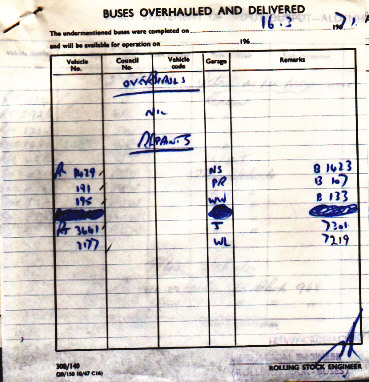 BUSES OVERHAULED AND DELIVERED
The undermentioned buses were completed on 16.3 1971
and will be available for operation on 196
Vehicle No. Council No. Vehicle code Garage Remarks
OVERHAULS
NIL
REPAINTS
NS B 1423
191 PR B 107
195 WW B 133
3641 J 7201
2177 WL 7219
308/140
ROLLING STOCK ENGINEER